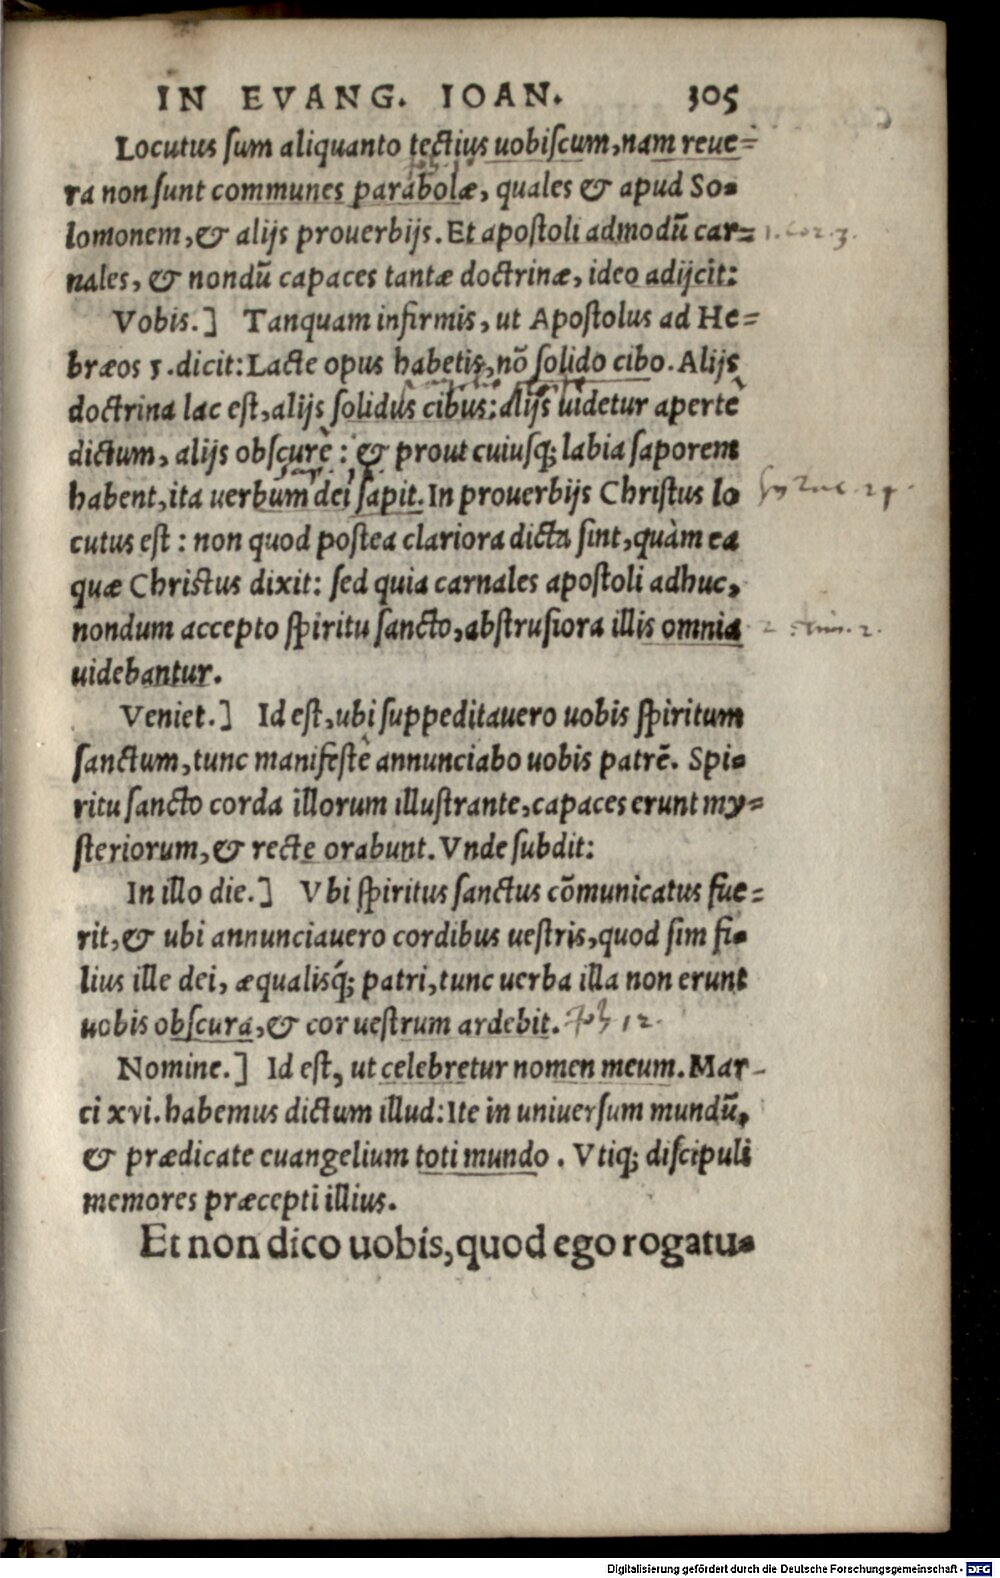 IN EVANG. IOAN. 305
Locutus sum aliquanto tectius uobiscum, nam reue=
ra non sunt communes parabolæ, quales & apud So-
lomonem, & alijs prouerbijs. Et apostoli admodũ car= 1. Cor. 3.
nales, & nondũ capaces tantæ doctrinæ, ideo adijcit:
Vobis.] Tanquam infirmis, ut Apostolus ad He=
bræos 5. dicit: Lacte opus habetis, nõ solido cibo. Alijs
doctrina lac est, alijs solidus cibus: alijs uidetur apertè
dictum, alijs obscurè: & prout cuiusq; labia saporem
habent, ita uerbum dei sapit. In prouerbijs Christus lo
cutus est: non quod postea clariora dicta sint, quàm ea
quæ Christus dixit: sed quia carnales apostoli adhuc,
nondum accepto spiritu sancto, abstrusiora illis omnia
uidebantur.
Veniet.] Id est, ubi suppeditauero uobis spiritum
sanctum, tunc manifestè annunciabo uobis patrẽ. Spi-
ritu sancto corda illorum illustrante, capaces erunt my=
steriorum, & recte orabunt. Vnde subdit:
In illo die.] Vbi spiritus sanctus cõmunicatus fue=
rit, & ubi annunciauero cordibus uestris, quod sim fi-
lius ille dei, æqualisq́; patri, tunc uerba illa non erunt
uobis obscura, & cor uestrum ardebit.
Nomine.] Id est, ut celebretur nomen meum. Mar-
ci xvi. habemus dictum illud: Ite in uniuersum mundũ,
& prædicate euangelium toti mundo. Vtiq; discipuli
memores præcepti illius.
Et non dico uobis, quod ego rogatu-
Digitalisierung gefördert durch die Deutsche Forschungsgemeinschaft - DFG